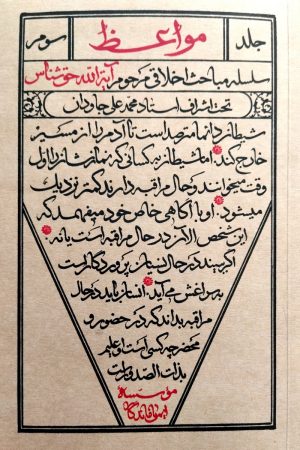 جلد مواعظ سوم
سلسله مباحث اخلاقی مرحوم آیة الله حق شناس
تحت اشراف استاد محمد علی جاودان
شیطان دائما مترصد است تا آدم را از مسیر
خارج کند. اما شیطان به کسانی که نمازشان را اول
وقت میخوانند و حال مراقبه دارند کمتر نزدیک
میشود. او با آگاهی خاص خود میفهمد که
این شخص الآن در حال مراقبه است یا نه.
اگر ببیند در حال نسیان پروردگار است
به سراغش می‌آید. انسان باید در حال
مراقبه بداند که در حضور و
محضر چه کسی است او علیم
بذات الصدور است
مؤسسه